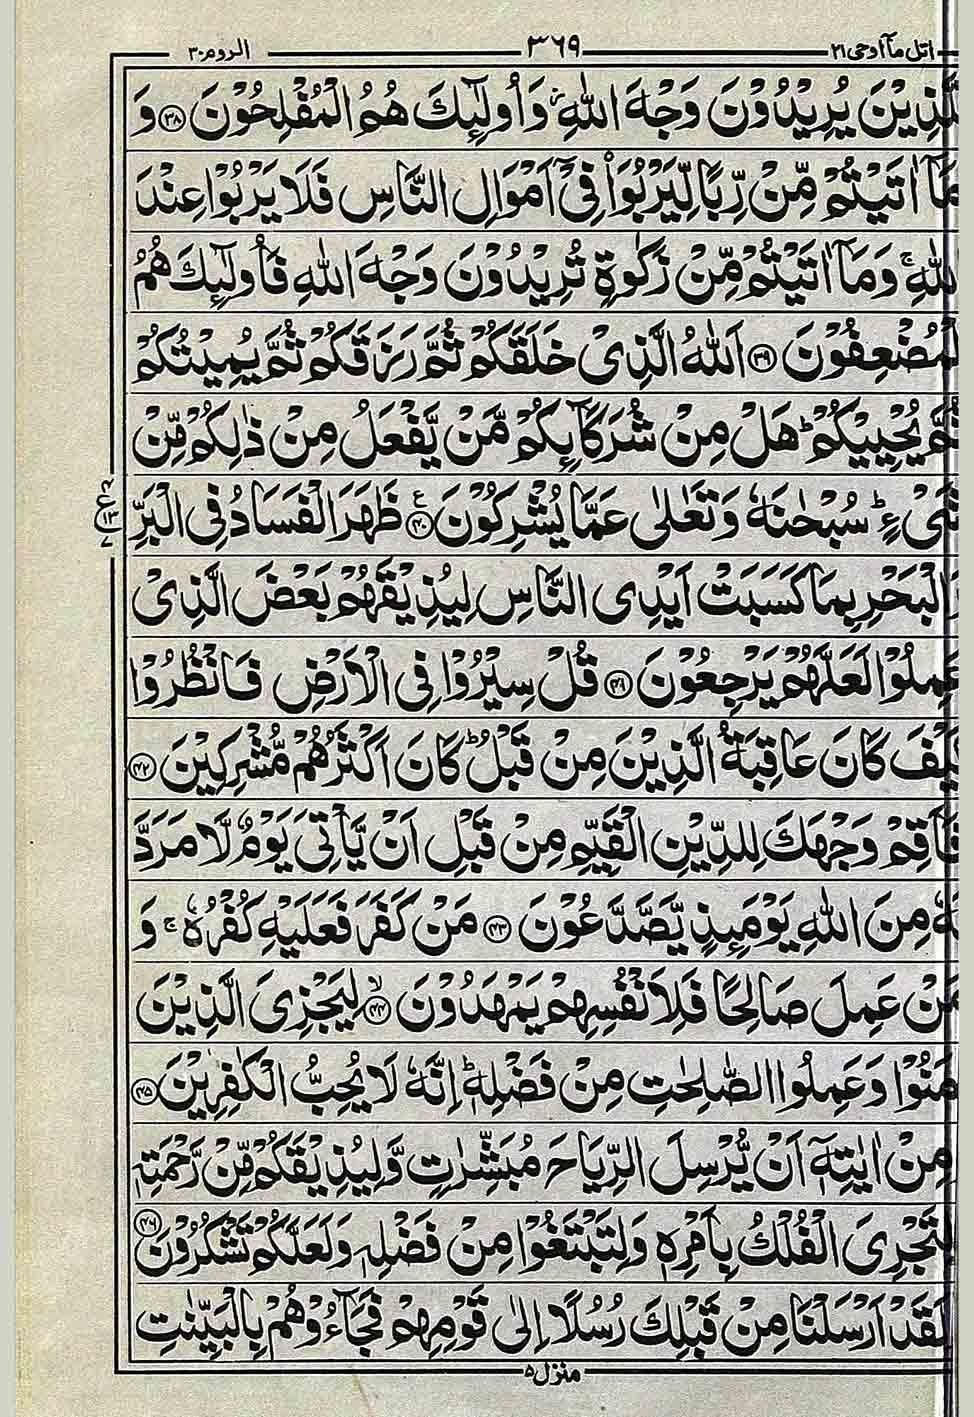 اتل مآ اوحی ۲۱ ۳۶۹ الروم ۳۰
لِّلَّذِیْنَ یُرِیْدُوْنَ وَجْهَ اللّٰهِ ؗ وَاُولٰٓئِكَ هُمُ الْمُفْلِحُوْنَ ﴿۳۸﴾ وَ
مَاۤ اٰتَیْتُمْ مِّنْ رِّبًا لِّیَرْبُوَا۟ فِیْۤ اَمْوَالِ النَّاسِ فَلَا یَرْبُوْا عِنْدَ
اللّٰهِ ۚ وَمَاۤ اٰتَیْتُمْ مِّنْ زَكٰوةٍ تُرِیْدُوْنَ وَجْهَ اللّٰهِ فَاُولٰٓئِكَ هُمُ
الْمُضْعِفُوْنَ ﴿۳۹﴾ اَللّٰهُ الَّذِیْ خَلَقَكُمْ ثُمَّ رَزَقَكُمْ ثُمَّ یُمِیْتُكُمْ
ثُمَّ یُحْیِیْكُمْ ؕ هَلْ مِنْ شُرَكَآئِكُمْ مَّنْ یَّفْعَلُ مِنْ ذٰلِكُمْ مِّنْ
شَیْءٍ ؕ سُبْحٰنَهٗ وَتَعٰلٰی عَمَّا یُشْرِكُوْنَ ﴿۴۰﴾ ظَهَرَ الْفَسَادُ فِی الْبَرِّ
وَالْبَحْرِ بِمَا كَسَبَتْ اَیْدِی النَّاسِ لِیُذِیْقَهُمْ بَعْضَ الَّذِیْ
عَمِلُوْا لَعَلَّهُمْ یَرْجِعُوْنَ ﴿۴۱﴾ قُلْ سِیْرُوْا فِی الْاَرْضِ فَانْظُرُوْا
كَیْفَ كَانَ عَاقِبَةُ الَّذِیْنَ مِنْ قَبْلُ ؕ كَانَ اَكْثَرُهُمْ مُّشْرِكِیْنَ ﴿۴۲﴾
فَاَقِمْ وَجْهَكَ لِلدِّیْنِ الْقَیِّمِ مِنْ قَبْلِ اَنْ یَّاْتِیَ یَوْمٌ لَّا مَرَدَّ
لَهٗ مِنَ اللّٰهِ یَوْمَئِذٍ یَّصَّدَّعُوْنَ ﴿۴۳﴾ مَنْ كَفَرَ فَعَلَیْهِ كُفْرُهٗ ۚ وَ
مَنْ عَمِلَ صَالِحًا فَلِاَنْفُسِهِمْ یَمْهَدُوْنَ ﴿۴۴﴾ لِیَجْزِیَ الَّذِیْنَ
اٰمَنُوْا وَعَمِلُوا الصّٰلِحٰتِ مِنْ فَضْلِهٖ ؕ اِنَّهٗ لَا یُحِبُّ الْكٰفِرِیْنَ ﴿۴۵﴾
وَمِنْ اٰیٰتِهٖۤ اَنْ یُّرْسِلَ الرِّیَاحَ مُبَشِّرٰتٍ وَّلِیُذِیْقَكُمْ مِّنْ رَّحْمَتِهٖ
وَلِتَجْرِیَ الْفُلْكُ بِاَمْرِهٖ وَلِتَبْتَغُوْا مِنْ فَضْلِهٖ وَلَعَلَّكُمْ تَشْكُرُوْنَ ﴿۴۶﴾
وَلَقَدْ اَرْسَلْنَا مِنْ قَبْلِكَ رُسُلًا اِلٰی قَوْمِهِمْ فَجَآءُوْهُمْ بِالْبَیِّنٰتِ
منزل ۵